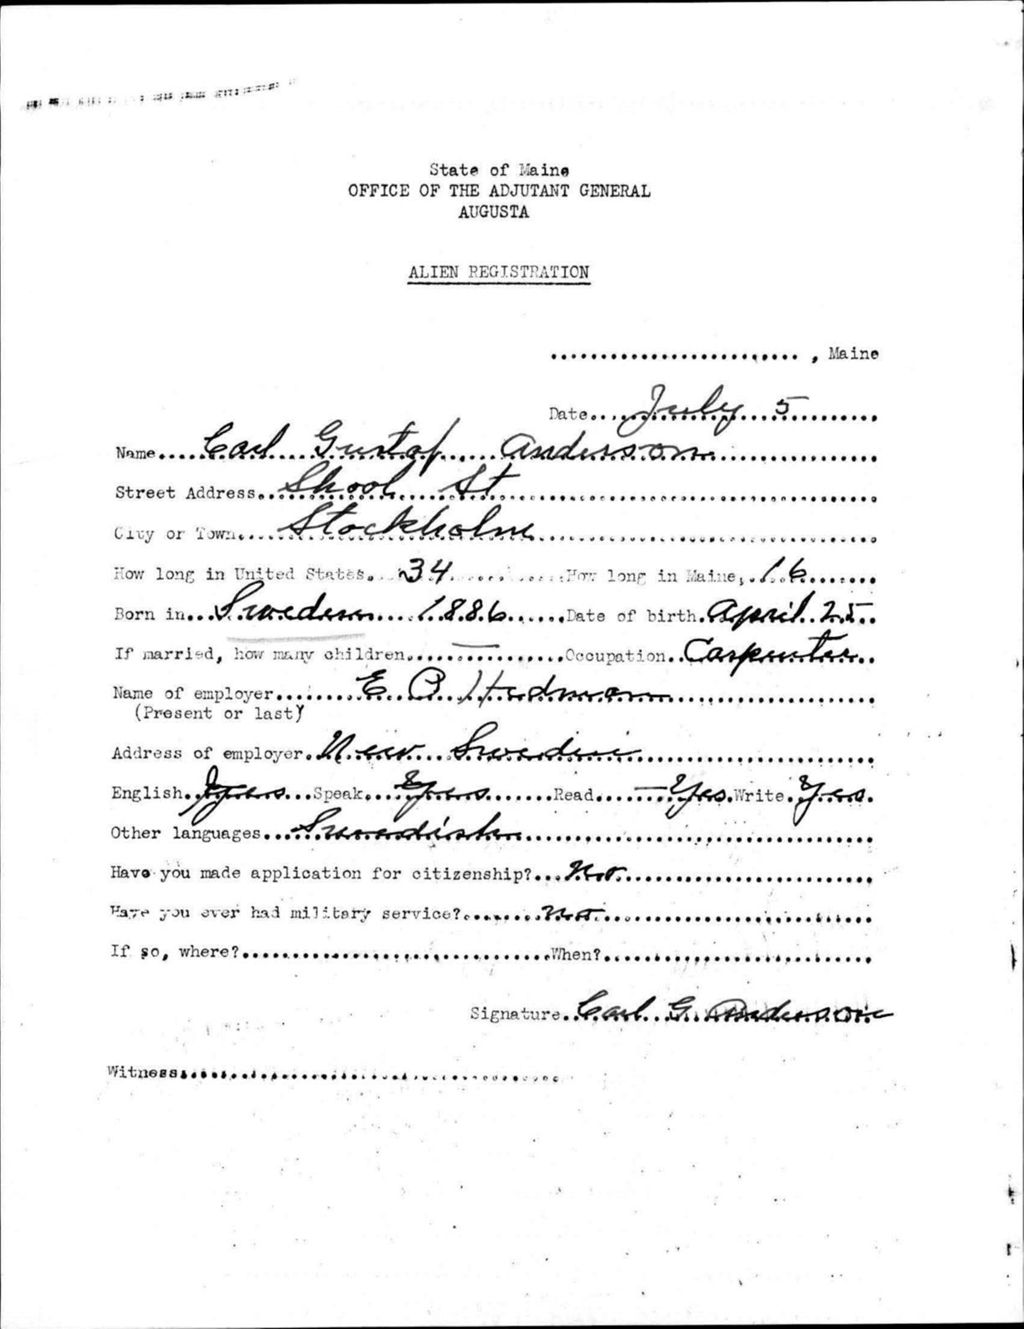 State of Maine
OFFICE OF THE ADJUTANT GENERAL
AUGUSTA
ALIEN REGISTRATION
, Maine
Date July 5
Name Carl Gustaf Anderson
Street Address Skool St
City or Town Stockholm
How long in United States 34 How long in Maine 16
Born in Sweden 1886 Date of birth April 25
If married, how many children — Occupation Carpenter
Name of employer E. P. Hedman
(Present or last)
Address of employer New Sweden
English Yes Speak Yes Read Yes Write Yes
Other languages Swedish
Have you made application for citizenship? No
Have you ever had military service? No
If so, where? When?
Signature Carl G. Anderson
Witness